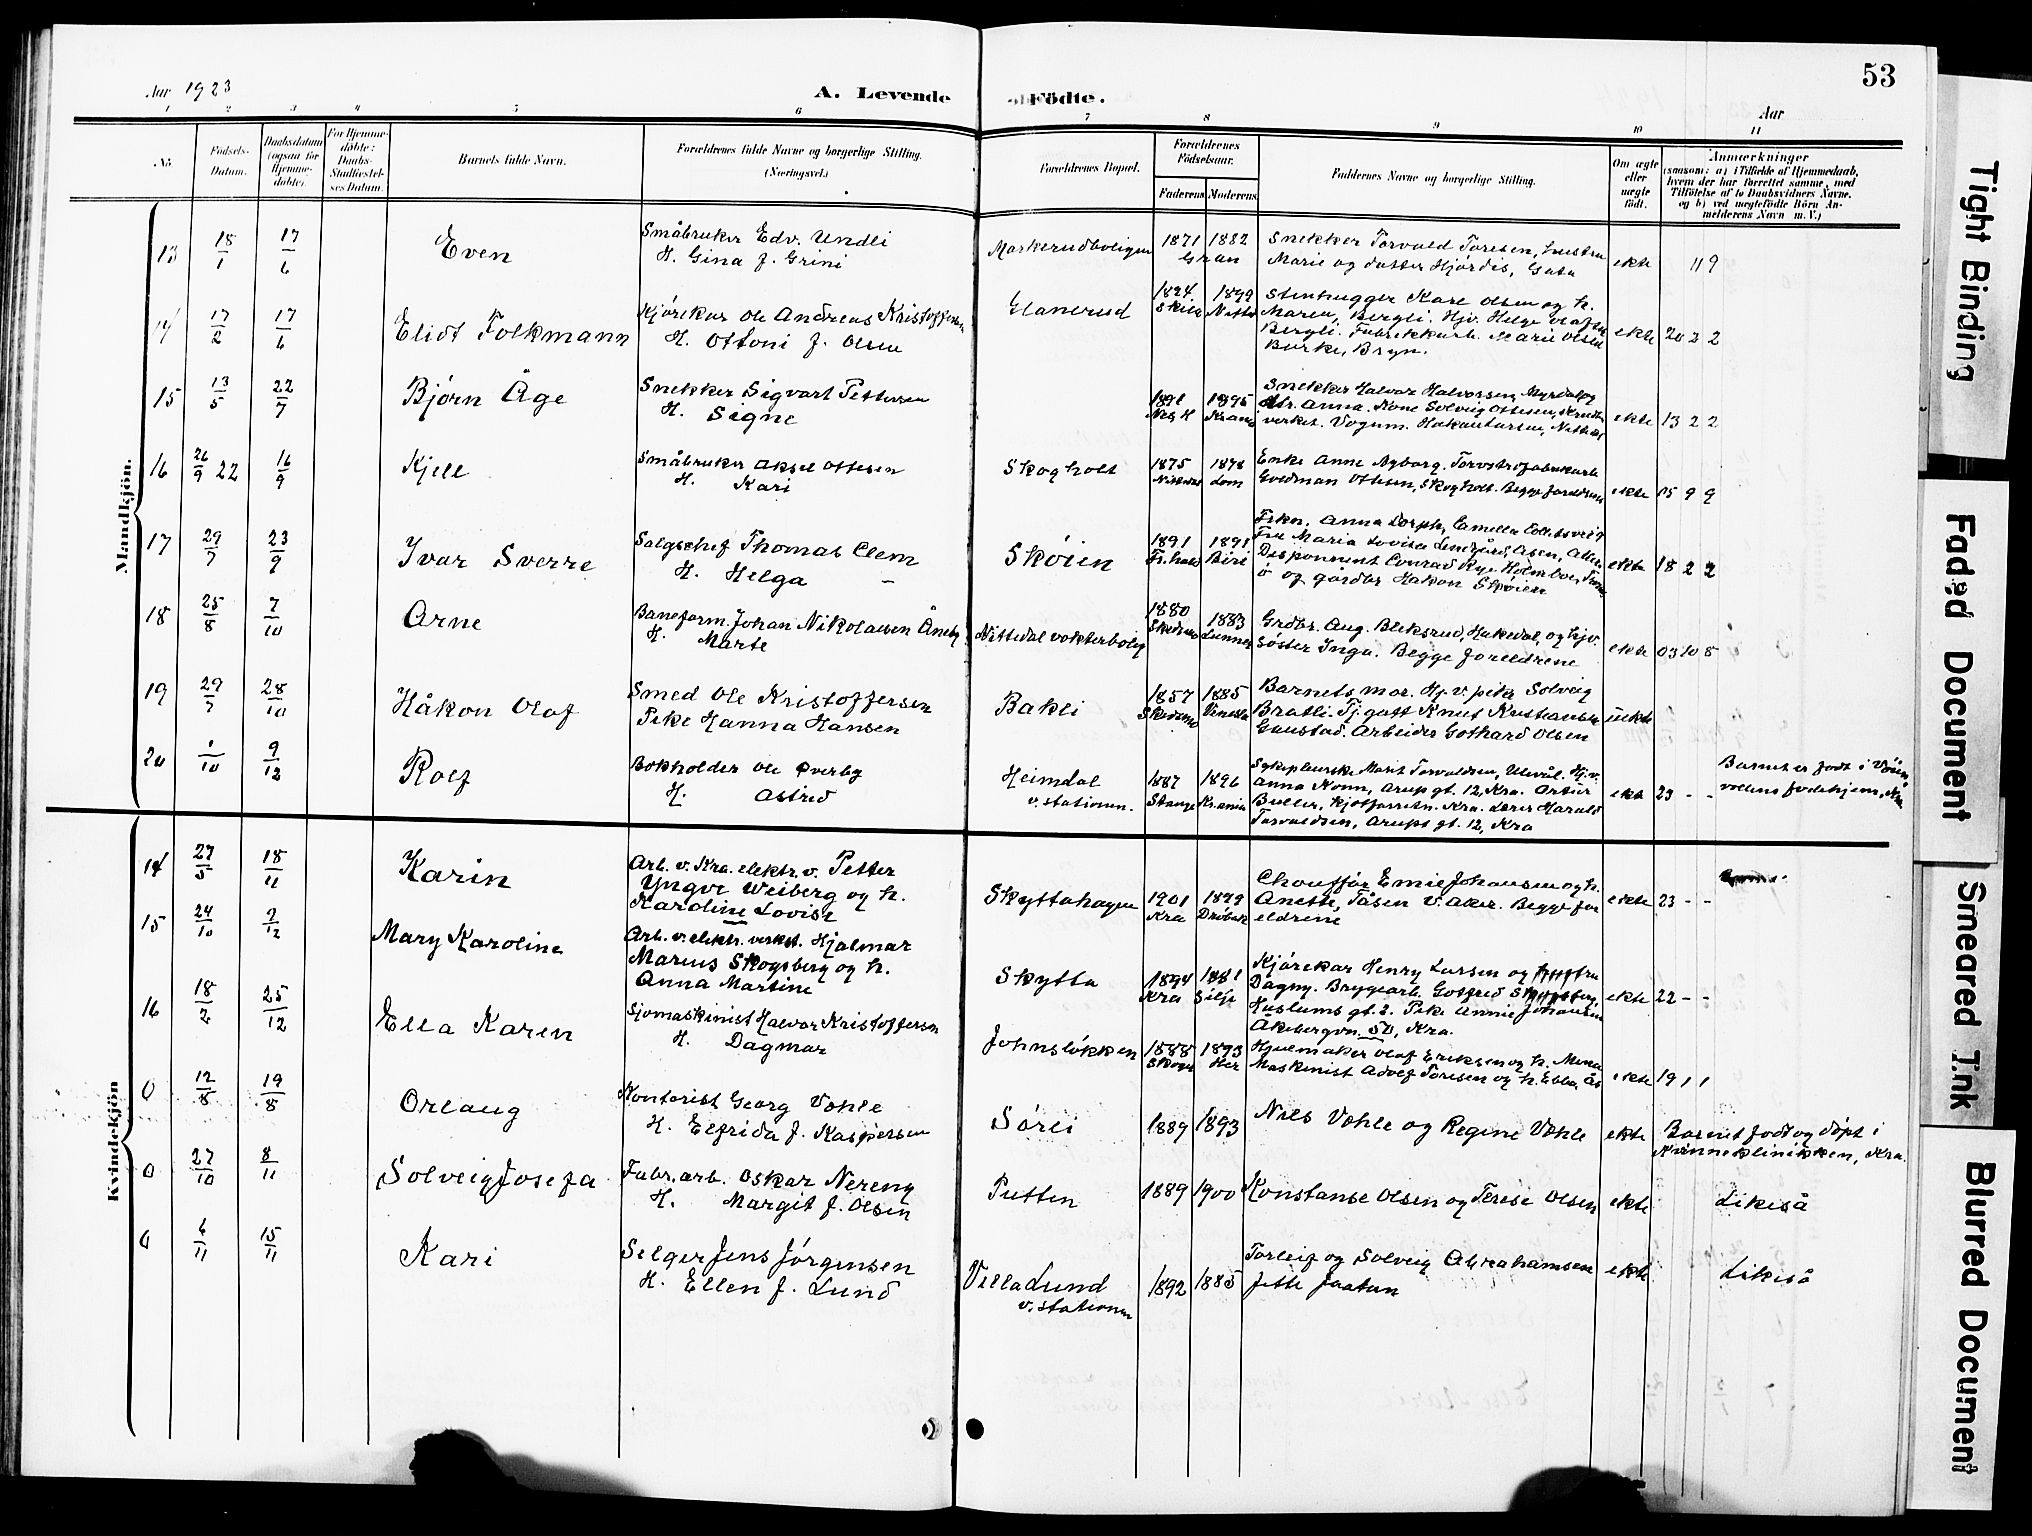 53
Aar 1923
A. Levende Födte.
Aar
1 2 3 4 5 6 7 8 9 10 11
No
Födsels-Datum.
Daabsdatum (ogsaa for Hjemme-döbte).
For Hjemme-döbte: Daabs-Stadfæstelses Datum.
Barnets fulde Navn.
Forældrenes fulde Navne og borgerlige Stilling. (Næringsvei.)
Forældrenes Bopæl.
Forældrenes Födselsaar.
Faderens Moderens
Faddernes Navne og borgerlige Stilling.
Om ægte eller uægte födt.
Anmærkninger
(saasom: a) i Tilfælde af Hjemmedaab, hvem der har forrettet samme, med Tilföielse af to Daabsvidners Navne, og b) ved uægtefödte Börn Anmelderens Navn m. V.)
Mandkjön.
13 18/1 17/6 Even
Småbruker Edv. Undli
H. Gina f. Grini
Markerudboligen 1871 1882
Gran
Snekker Torvald Toresen, hustru
Marie og datter Hjørdis, Gata
ekte 11 9
14 17/2 17/6 Eliot Folkmann
Kjørekar Ole Andreas Kristoffersen
H. Ottoni f. Olsen
Glanerud
1894 1899
Stenhugger Karl Olsen og h.
Maren, Bergli. Hjv. Helge Olafsen
Bergli. Fabrikkarb. Marie Olsen
Burke, Bryn.
ekte 20 2 2
15 13/5 22/7 Bjørn Åge
Snekker Sigvart Pettersen
H. Signe
1891 1895
Nes H Krania
Snekker Halvor Halvorsen, Myrdal og
Anna. Kone Solveig Ottesen,
verket.
ekte 13 2 2
16 26/9 22 16/9 Kjell
Småbruker Aksel Ottesen
H. Kari
Skogholt 1875 1878
Lom
Enke Anne Nyborg. Torvstrøfabrikarb.
Goodman Ottesen, Skogholt. Begge foreldrene
ekte 15 9 9
17 29/7 23/9 Ivar Sverre
Salgschef Thomas Clem
H. Helga —
Skøien
1891 1891
Fr.hald Biri
Frkn. Anna Dorph, Camilla
Fru Maria Lovisa
Disponent Conrad Rye Holmboe,
ö og gardbr Hakon Skøien
ekte 18 2 2
18 25/8 7/10 Arne
Baneform. Johan Nikolaisen Åneby
H. Marte
Nittedal vokterbolig
1880 1883
Skedsmo Lunner
Grdbr. Aug. Bleksrud, Hakedal, og hjv.
søster Inga. Begge foreldrene
ekte 03 10 8
19 29/7 28/10 Håkon Olaf
Smed Ole Kristoffersen
Pike Hanna Hansen
Bakli
1857 1885
Skedsmo Vinesla
Barnets mor. Hj.v. pike Solveig
Bratli. Tj. gutt Knut Kristiansen
Gaustad. Arbeider Gothard Olsen
uekte
20 1/10 9/12 Rolf
Bokholder Ole Øverby
H. Astrid
Heimdal
v. stationen.
1887 1896
Stange Krania
Sykepleierske Marit Torvaldsen, Ulevål. Hj.v.
Anna Konn, Arups gt. 12, Kra. Artur
Buller, Kjøtforretn. Kra. Lærer Harald
Torvaldsen, Arups gt. 12, Kra
ekte 23 - -
Barnet er født i
vollens fødehjem, Kra
Kvindekjön
14 27/5 18/11 Karin
Arb. v. Kra. elektr. v. Petter
Yngve Weiberg og h.
Karoline Lovise
Skyttahagen 1901 1899
Kra Drøbak
Chauffør Emil Johansen og h.
Anette, Tåsen V. Aker. Begge for
eldrene
ekte 23 - -
15 24/10 2/12 Mary Karoline
Arb. v. elektr. verket. Hjalmar
Marius Skogsberg og h.
Anna Martine
Skytta 1894 1881
Kra Silje
Kjørekar Henry Larsen og fru
Dagny. Bryggearb. Gotfred Skogsberg,
Haslums gt. 2. Pike Annie Johansen
Åkebergvn. 50, Kra.
ekte 22 - -
16 18/2 25/12 Ella Karen
Sjømaskinist Halvor Kristoffersen
H. Dagmar
Johnsløkken 1888 1893
Skoger Her
Hjulmaker Olaf Eriksen og h. Mona
Maskinist Adolf Toresen og h. Ebba, Ås
ekte 19 1 1
0 12/8 19/8 Orlaug
Kontorist Georg Vohle
H. Elfrida f. Kaspersen
Sørli 1889 1893
Nils Vohle og Regine Vohle ekte
Barnet født og døpt i
Kvinneklinikken, Kra.
0 27/10 8/11 Solveig Josefa
Fabr. arb. Oskar Nereng
H. Margit f. Olsen
Putten 1889 1900
Konstanse Olsen og Terese Olsen ekte
Likeså
0 4/11 15/11 Kari
Selger Jens Jørgensen
H. Ellen f. Lund
Villa Lund
v. stationen
1892 1885
Torleif og Solveig Abrahamsen
Jette Jaatun
ekte Likeså
Tight Binding
Faded Document
Smeared Ink
Blurred Document